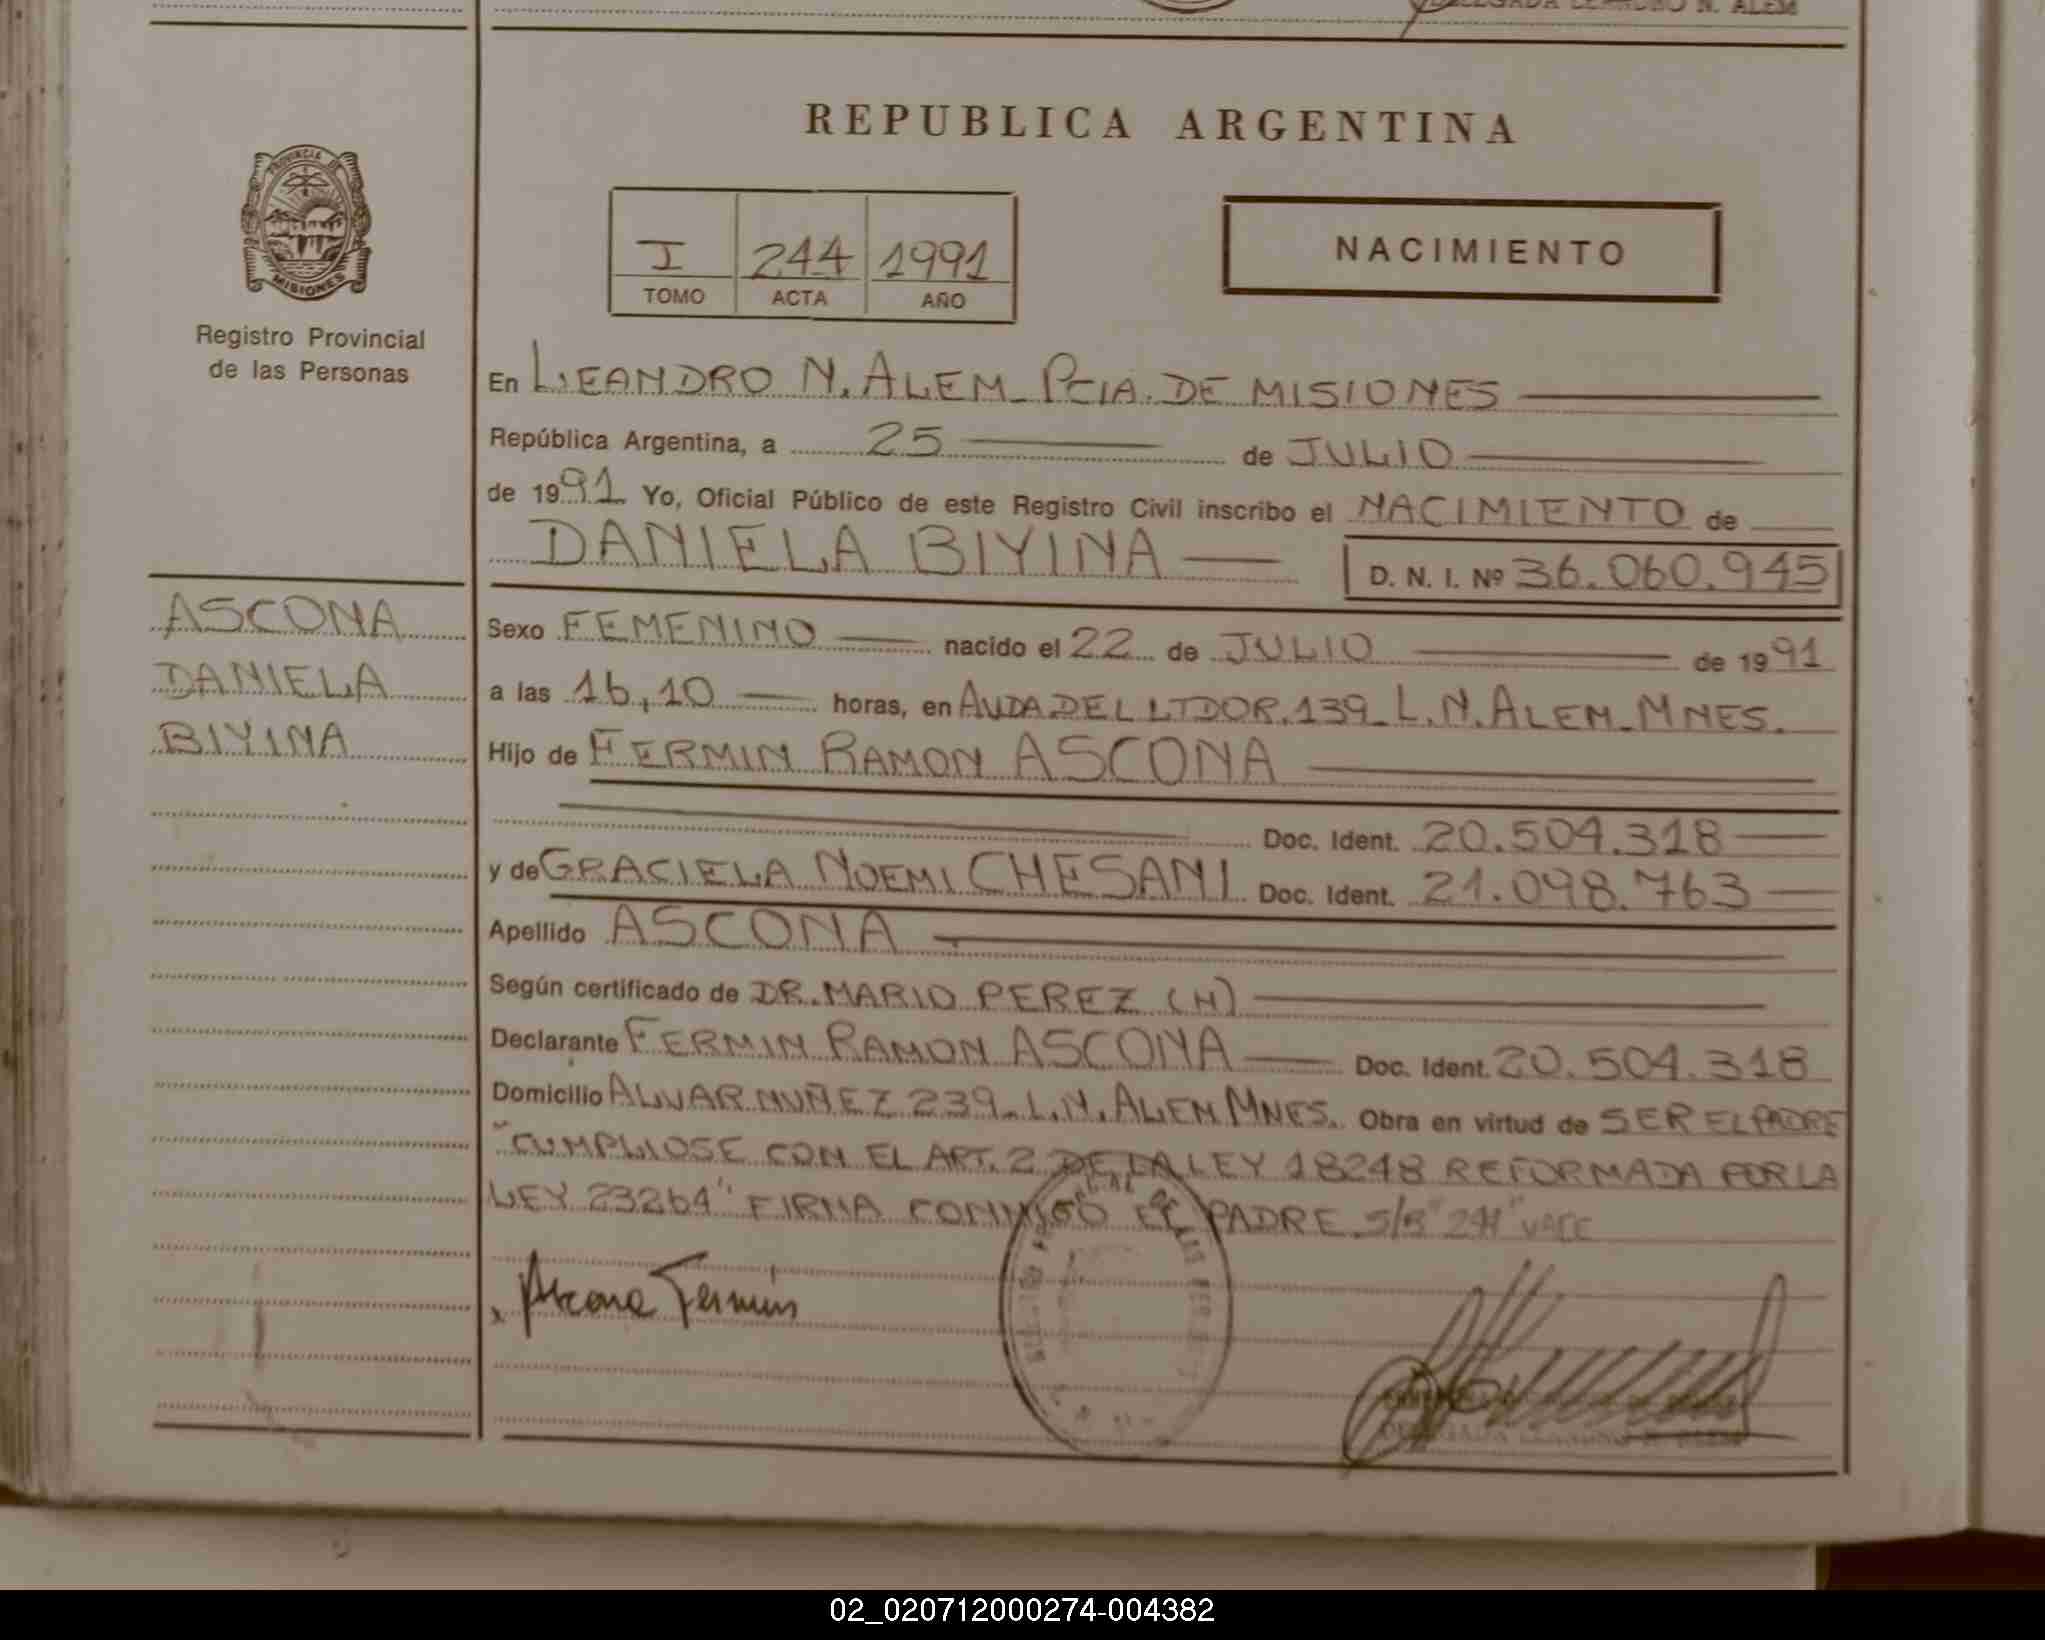 DELEGADA LEANDRO N. ALEM
REPUBLICA ARGENTINA
PROVINCIA DE
MISIONES
Registro Provincial
de las Personas
I 244 1991
TOMO ACTA AÑO
NACIMIENTO
En LEANDRO N. ALEM_ PCIA. DE MISIONES
República Argentina, a 25 de JULIO
de 1991 Yo, Oficial Público de este Registro Civil inscribo el NACIMIENTO de
DANIELA BIYINA D. N. I. Nº 36.060.945
ASCONA
DANIELA
BIYINA
Sexo FEMENINO nacido el 22 de JULIO de 1991
a las 16,10 horas, en AVDA.DEL LTDOR.139_L.N.ALEM_MNES.
Hijo de FERMIN RAMON ASCONA
Doc. Ident. 20.504.318
y de GRACIELA NOEMI CHESANI Doc. Ident. 21.098.763
Apellido ASCONA
Según certificado de DR.MARIO PEREZ (H)
Declarante FERMIN RAMON ASCONA Doc. Ident. 20.504.318
Domicilio ALVAR NUÑEZ 239_L.N.ALEM MNES. Obra en virtud de SER EL PADRE
"CUMPLIOSE CON EL ART. 2 DE LA LEY 18248 REFORMADA POR LA
LEY 23264" FIRMA CONMIGO EL PADRE S/B "244" VALE
x Ascona Fermin
02_020712000274-004382